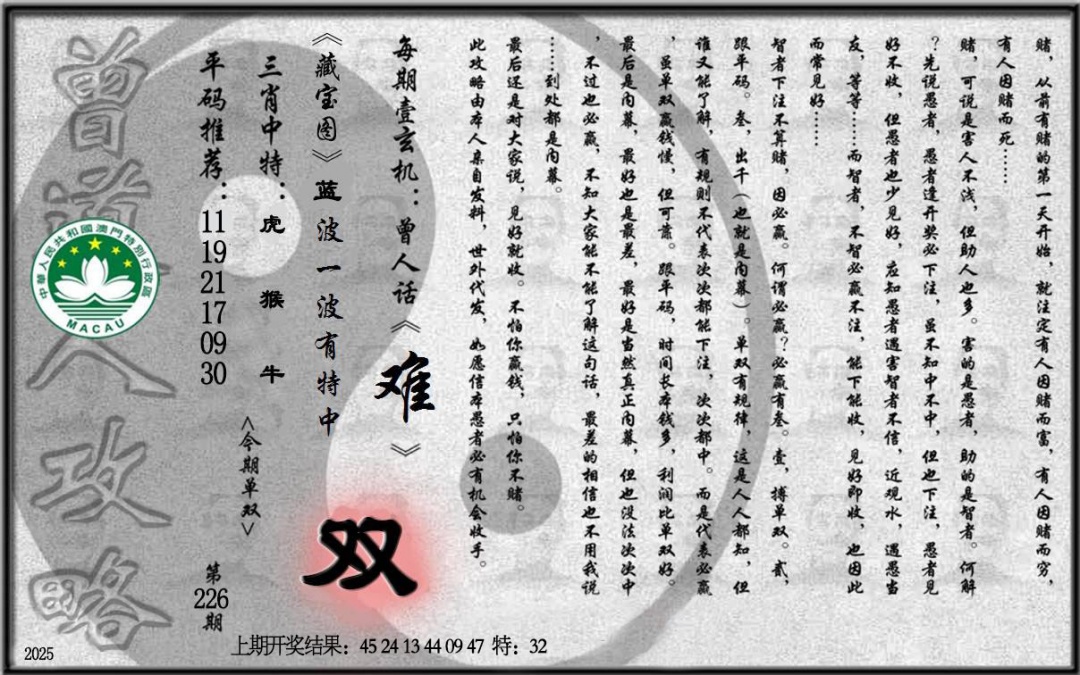 赌，从前有赌的第一天开始，就注定有人因赌而富，有人因赌而穷，
有人因赌而死……
赌，可说是害人不浅，但助人也多。害的是愚者，助的是智者。何解
？先说愚者，愚者逢开奖必下注，虽不知中不中，但也下注，愚者见
好不收，但愚者也少见好，应知愚者遇害智者不信，近观水，遇愚当
友，等等……而智者，不智必赢不注，能下能收，见好即收，也因此
而常见好……
智者下注不算赌，因必赢。何谓必赢？必赢有叁。壹，搏单双。贰，
跟平码。叁，出千（也就是内幕）。单双有规律，这是人人都知，但
谁又能了解，有规则不代表次次都能下注，次次都中。而是代表必赢
，虽单双赢钱慢，但可靠。跟平码，时间长本钱多，利润比单双好。
最后是内幕，最好也是最差，最好是当然真正内幕，但也没法次次中
，不过也必赢，不知大家能不能了解这句话，最差的相信也不用我说
……到处都是内幕。
最后还是对大家说，见好就收。不怕你赢钱，只怕你不赌。
此攻略由本人亲自发料，世外代发，如愿信本愚者必有机会收手。
每期壹玄机：曾人话《难》
《藏宝图》蓝波一波有特中
双
三肖中特：虎 猴 牛
<今期单双>
平码推荐：11 19 21 17 09 30
第226期
曾道人攻略
中華人民共和國澳門特別行政區
MACAU
2025
上期开奖结果：45 24 13 44 09 47 特：32